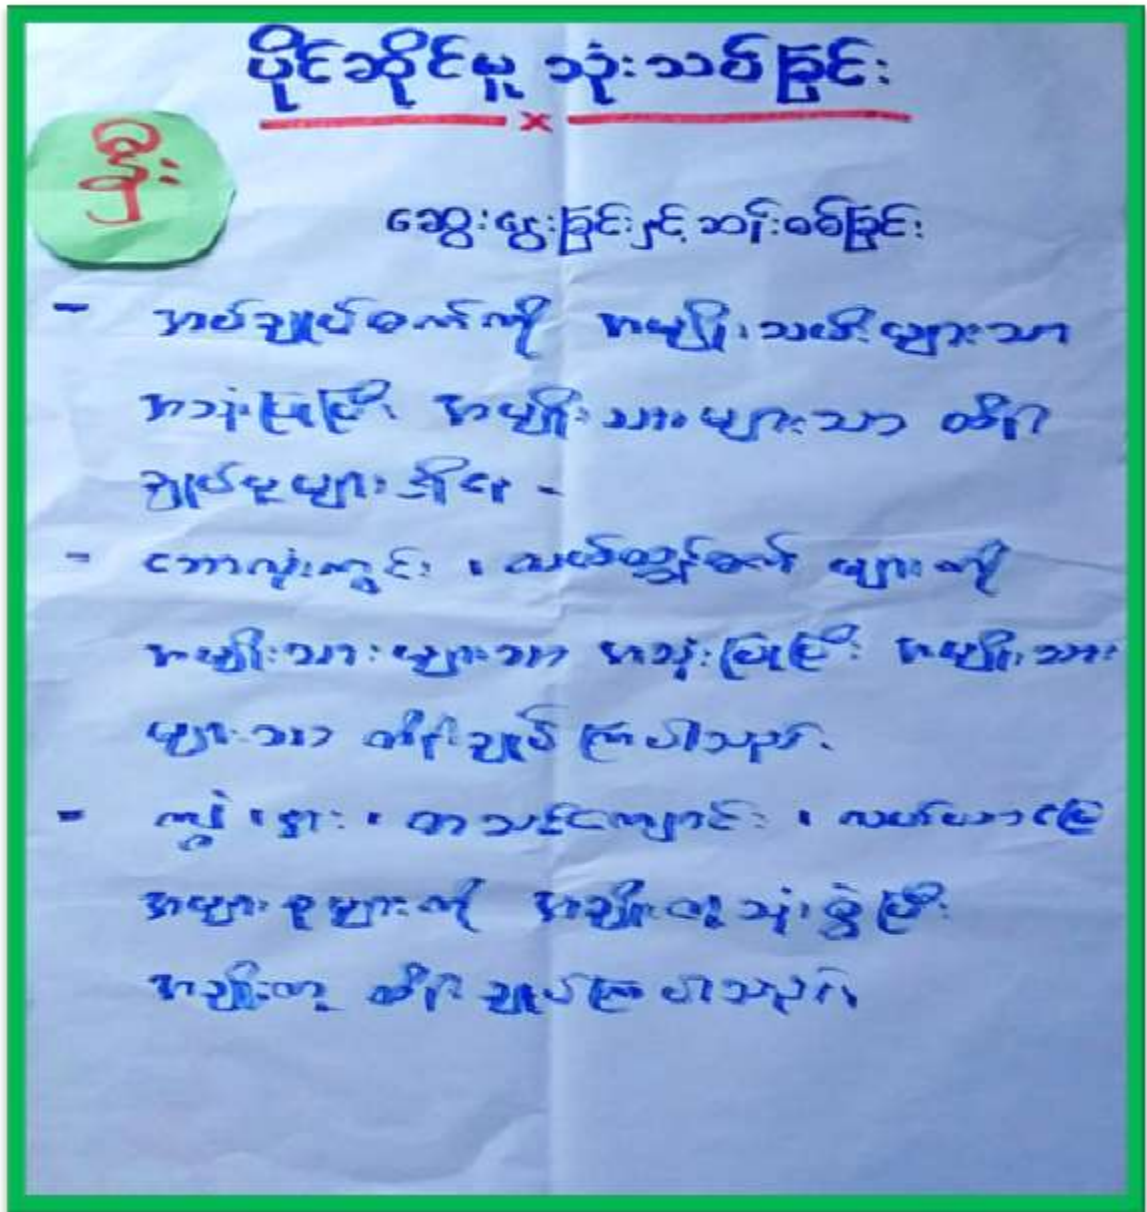 ပိုင်ဆိုင်မှု သုံးသပ်ခြင်း
ဦး
ဆွေးနွေးခြင်းနှင့် ဆန်းစစ်ခြင်း
- အပ်ချုပ်စက်ကို အမျိုးသမီးများသာ
အသုံးပြုပြီး အမျိုးသားများသာ ထိန်း
ချုပ်မှုများရှိနေ -
- ဘောလုံးကွင်း ၊ လယ်ထွန်စက် များကို
အမျိုးသားများသာ အသုံးပြုပြီး အမျိုးသား
များသာ ထိန်းချုပ် ကြပါသည်။
- ကျွဲ ၊ နွား ၊ စာသင်ကျောင်း ၊ လယ်ယာမြေ
အများစုများကို အချိုးတူ သုံးစွဲပြီး
အချိုးတူ ထိန်းချုပ်ကြပါသည်။